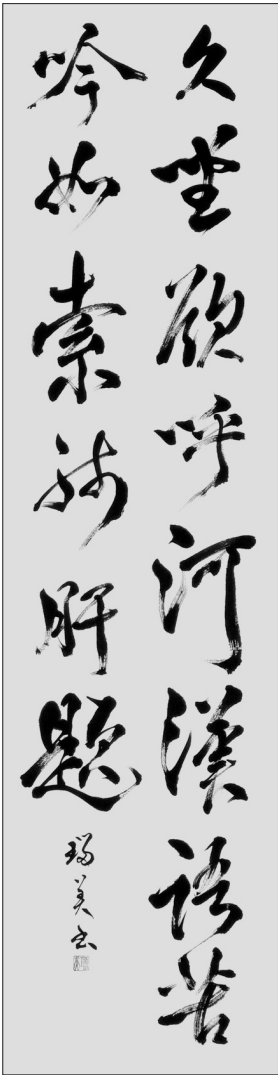 久坐欲呼河漢語苦
吟如索幼肝題
瑞美書